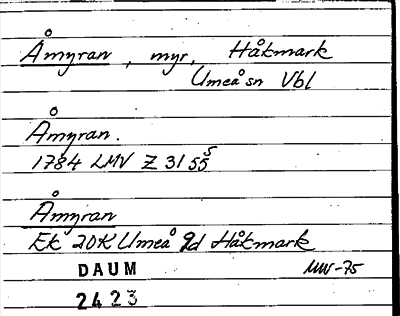 Åmyran, myr, Håkmark
Umeå sn Vbl
Åmyran.
1784 LMV Z 31 55⁵
Åmyran
Ek 20K Umeå gd Håkmark
DAUM MW-75
2423